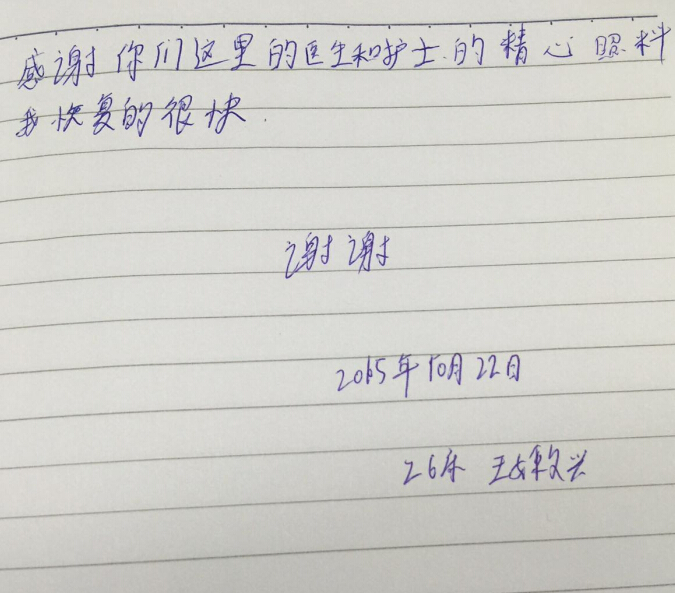 感谢你们这里的医生和护士的精心照料
我恢复的很快.
谢谢
2015年10月22日
26床 王 兴